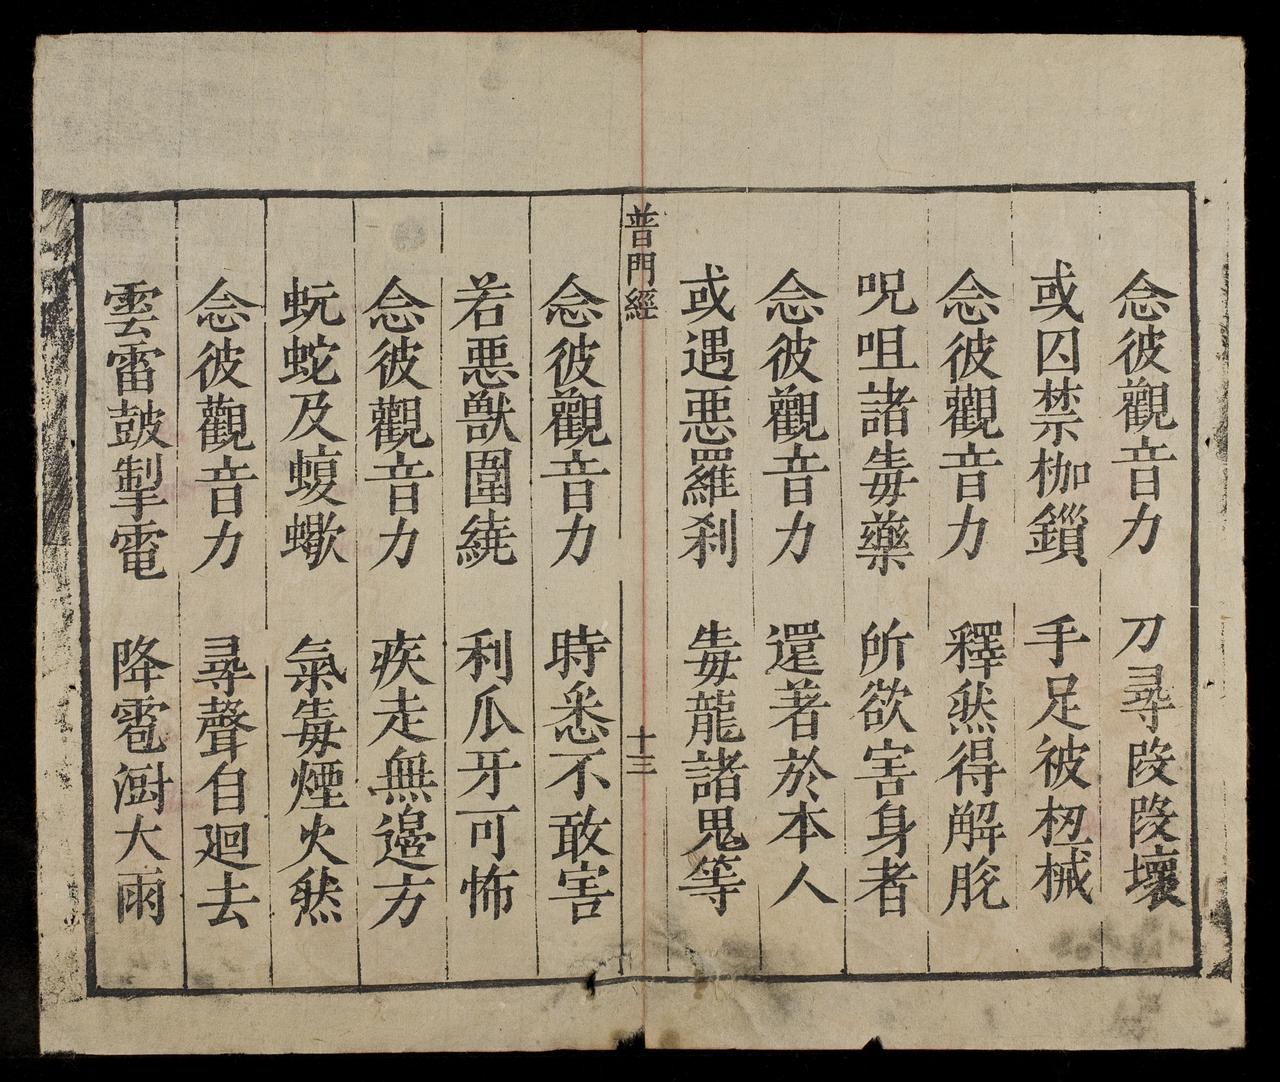 念彼觀音力　刀尋段段壞
或囚禁枷鎖　手足被杻械
念彼觀音力　釋然得解脫
呪咀諸毒藥　所欲害身者
念彼觀音力　還著於本人
或遇惡羅刹　毒龍諸鬼等
普門經　十三
念彼觀音力　時悉不敢害
若惡獸圍繞　利爪牙可怖
念彼觀音力　疾走無邉方
蚖蛇及蝮蠍　氣毒煙火然
念彼觀音力　尋聲自廻去
雲雷皷掣電　降雹澍大雨